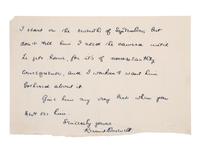 I start on the seventh of September, but
don't tell him I need the camera until
he gets home, for it's of no
consequence, and I wouldn't want him
bothered about it.
Give him my very best when you
him
Sincerely yours